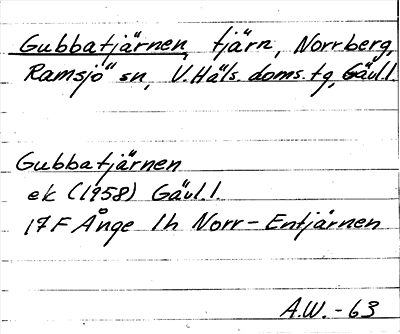 Gubbatjärnen, tjärn, Norrberg,
Ramsjö sn, V. Häls. doms. tg, Gävl. l.
Gubbatjärnen
ek (1958) Gävl. l.
17F Ånge 1h Norr-Entjärnen
A.W. - 63